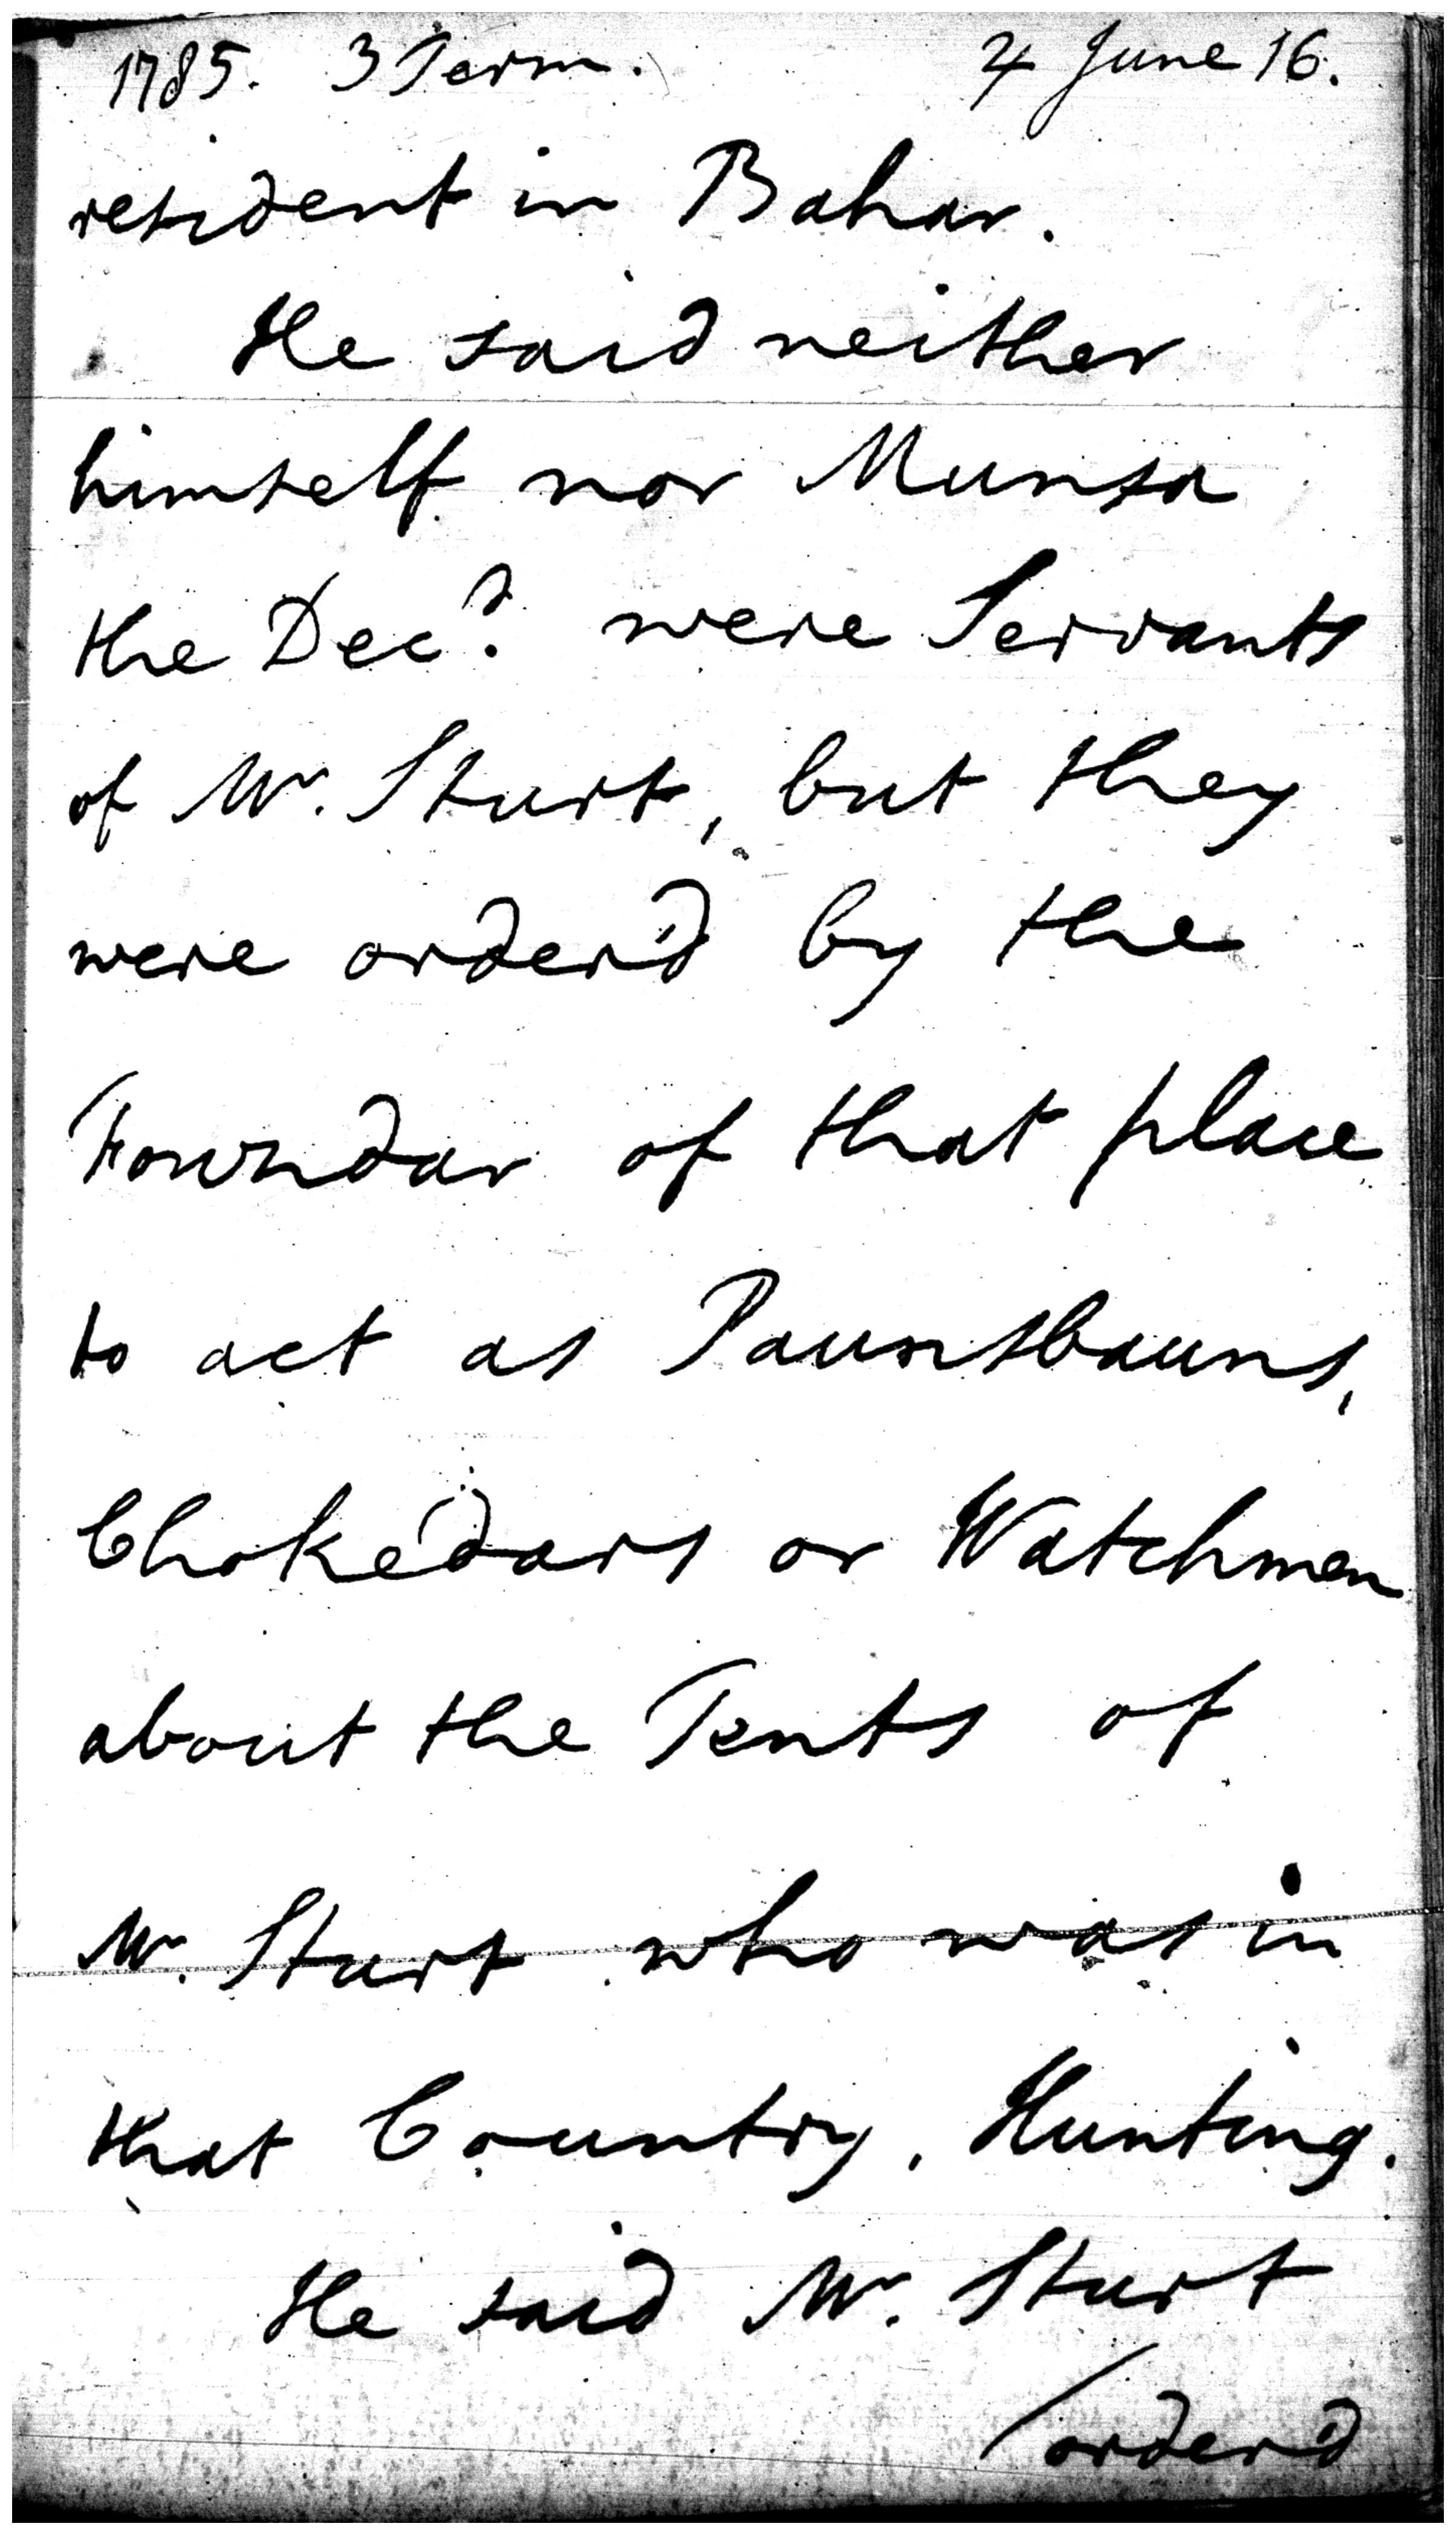 1785. 3 Term. 4 June 16.
resident in Bahar.
He said neither
himself nor Munsa
the Dec^d. were Servants
of M^r. Sturt, but they
were order'd by the
of that place
to act as Paunsbauns,
Chokedars or Watchmen
about the Tents of
M^r. Sturt who was in
that Country, Hunting.
He said M^r. Sturt
/order'd